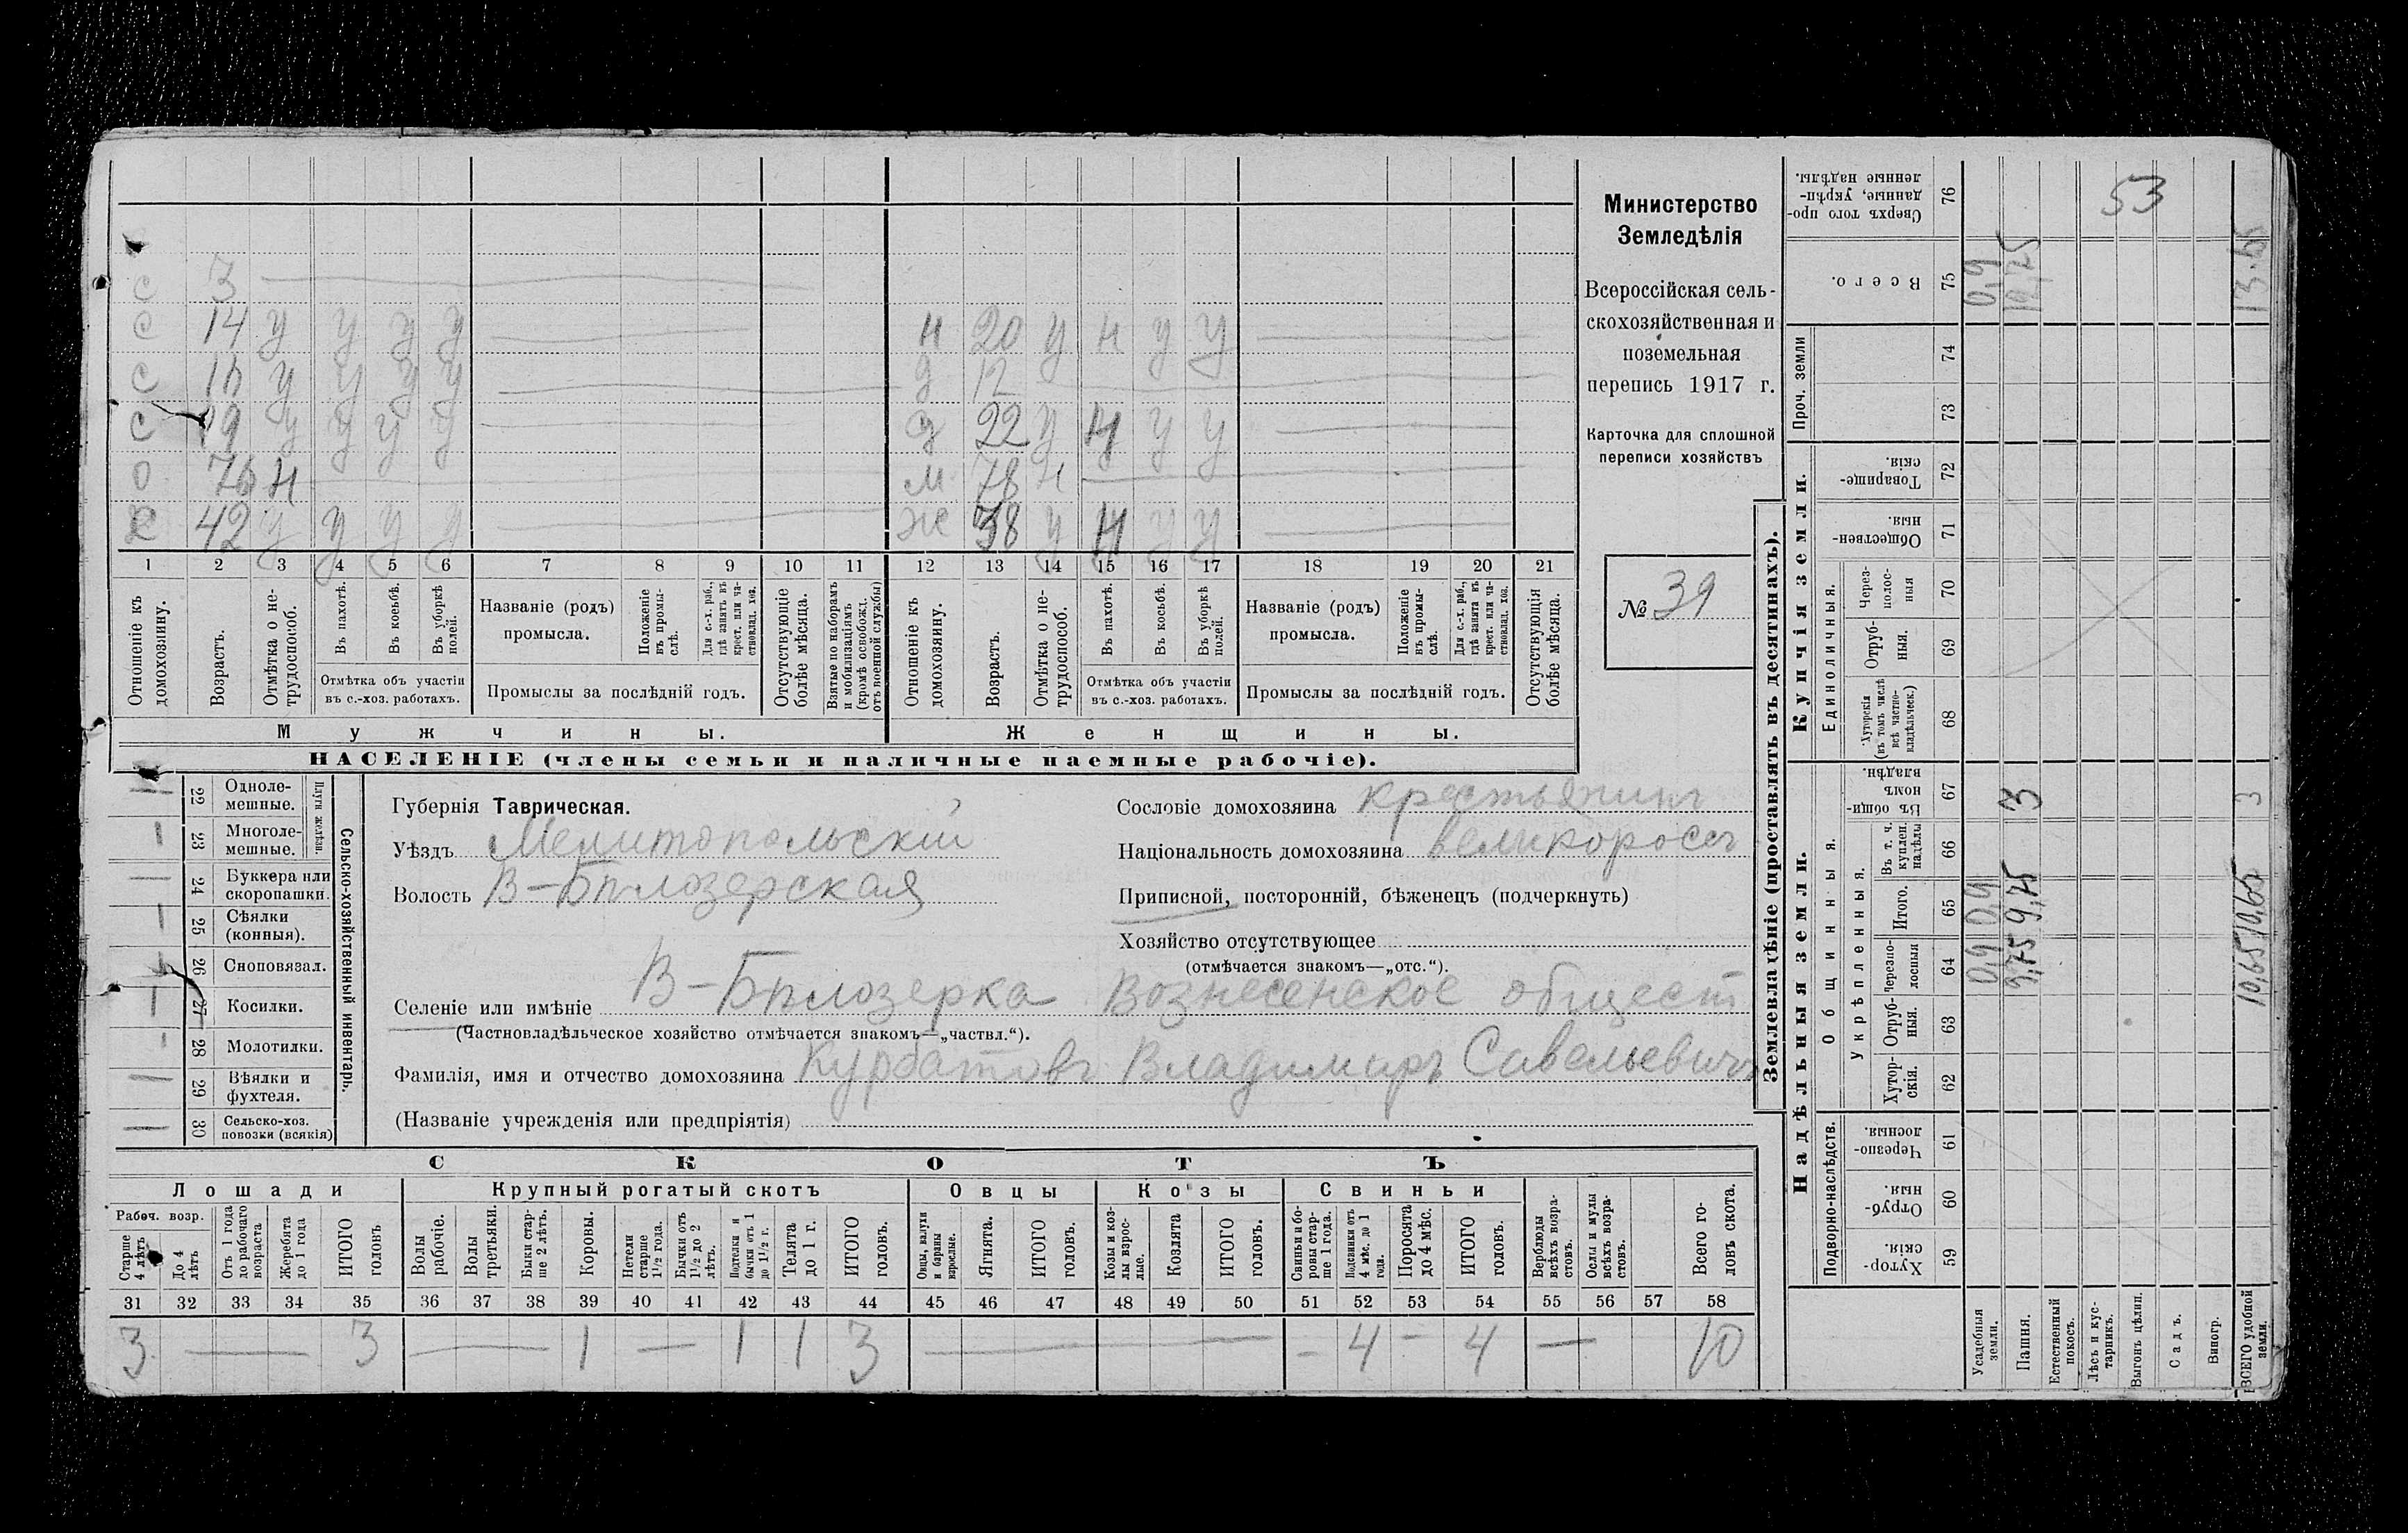 С 3
С 14 у у у у Н 20 у н у у
С у у у у д 12
С 19 у у у у д 22 у н у у
О Н М 78 н
42 у у у у Ж 38 у Н у у
1 2 3 4 5 6 7 8 9 10 11 12 13 14 15 16 17 18 19 20 21
Отношеніе къ домохозяину.
Возрастъ.
Отмѣтка о не-трудоспособ.
Въ пахотѣ.
Въ косьбѣ.
Въ уборкѣ полей.
Отмѣтка объ участіи въ с.-хоз. работахъ.
Названіе (родъ) промысла.
Положеніе въ промы-слѣ.
Для с.-х. раб., гдѣ занятъ въ крест. или ча-стновлад. хоз.
Промыслы за послѣдній годъ.
Отсутствующіе болѣе мѣсяца.
Взятые по наборамъ и мобилизаціямъ (кромѣ освобожд. отъ военной службы)
Отношеніе къ домохозяину.
Возрастъ.
Отмѣтка о не-трудоспособ.
Въ пахотѣ.
Въ косьбѣ.
Въ уборкѣ полей.
Отмѣтка объ участіи въ с.-хоз. работахъ.
Названіе (родъ) промысла.
Положеніе въ промы-слѣ.
Для с.-х. раб., гдѣ занята въ крест. или ча-стновлад. хоз.
Промыслы за послѣдній годъ.
Отсутствующія болѣе мѣсяца.
Мужчины. Женщины.
НАСЕЛЕНІЕ (члены семьи и наличные наемные рабочіе).
Министерство
Земледѣлія
Всероссійская сель-
скохозяйственная и
поземельная
перепись 1917 г.
Карточка для сплошной
переписи хозяйствъ
№ 39
Сельско-хозяйственный инвентарь.
Плуги желѣзн.
22 Однолe-мешные.
23 Многоле-мешные.
24 Буккера или скоропашки.
25 Сѣялки (конныя).
26 Сноповязал.
27 Косилки.
28 Молотилки.
29 Вѣялки и фухтеля.
30 Сельско-хоз. повозки (всякія)
Губернія Таврическая.
Уѣздъ Мелитопольскій
Волость В-Бѣлозерская
Сословіе домохозяина крестьянинъ
Національность домохозяина великороссъ
Приписной, посторонній, бѣженецъ (подчеркнуть)
Хозяйство отсутствующее
(отмѣчается знакомъ—„отс.“).
Селеніе или имѣніе В-Бѣлозерка Вознесенское общест
(Частновладѣльческое хозяйство отмѣчается знакомъ—„частвл.“).
Фамилія, имя и отчество домохозяина Курбатовъ Владимиръ Савельевичъ
(Названіе учрежденія или предпріятія)
СКОТЪ
Лошади Крупный рогатый скотъ Овцы Козы Свиньи
Рабоч. возр.
Старше 4 лѣтъ
До 4 лѣтъ
Отъ 1 года до рабочаго возраста
Жеребята до 1 года
ИТОГО головъ
Волы рабочіе.
Волы третьяки.
Быки стар-ше 2 лѣтъ.
Коровы.
Нетели старше 1½ года.
Бычки отъ 1½ до 2 лѣтъ.
Подтелки и бычки отъ 1 до 1½ г.
Телята до 1 г.
ИТОГО головъ.
Овцы, валухи и бараны взрослые.
Ягнята.
ИТОГО головъ.
Козы и коз-лы взрос-лые.
Козлята
ИТОГО головъ.
Свиньи и бо-ровы стар-ше 1 года.
Подсвинки отъ 4 мѣс. до 1 года.
Поросята до 4 мѣс.
ИТОГО головъ.
Верблюды всѣхъ возра-стовъ.
Ослы и мулы всѣхъ возра-стовъ.
Всего го-ловъ скота.
31 32 33 34 35 36 37 38 39 40 41 42 43 44 45 46 47 48 49 50 51 52 53 54 55 56 57 58
3 — 3 — 1 — 1 1 3 — - 4 - 4 — 10
Землевладѣніе (проставлять въ десятинахъ).
Купчія земли.
Надѣльныя земли.
Сверхъ того про-данные, укрѣп-ленные надѣлы. 76
53
Всего. 75
0,9
12,75
13.65
Проч. земли 74 73
Товарище-скія. 72
Обществен-ныя. 71
Единоличныя.
Через-полос-ныя 70
Отруб-ныя. 69
Хуторскія (въ томъ числѣ всѣ частно-владѣльческ.) 68
Общинныя.
Въ общи-номъ владѣн. 67
3
3
Укрѣпленныя.
Въ т. ч. куплен. надѣлы 66
Итого. 65
0,9
9,75
10,65
Черезпо-лосныя 64
0,9
9,75
10,65
Отруб-ныя. 63
Хутор-скія. 62
Подворно-наслѣдств.
Черезпо-лосныя. 61
Отруб-ныя. 60
Хутор-скія. 59
Усадебныя земли.
Пашня.
Естественный покосъ.
Лѣсъ и кус-тарникъ.
Выгонъ цѣлин.
Садъ.
Виногр.
ВСЕГО удобной земли.